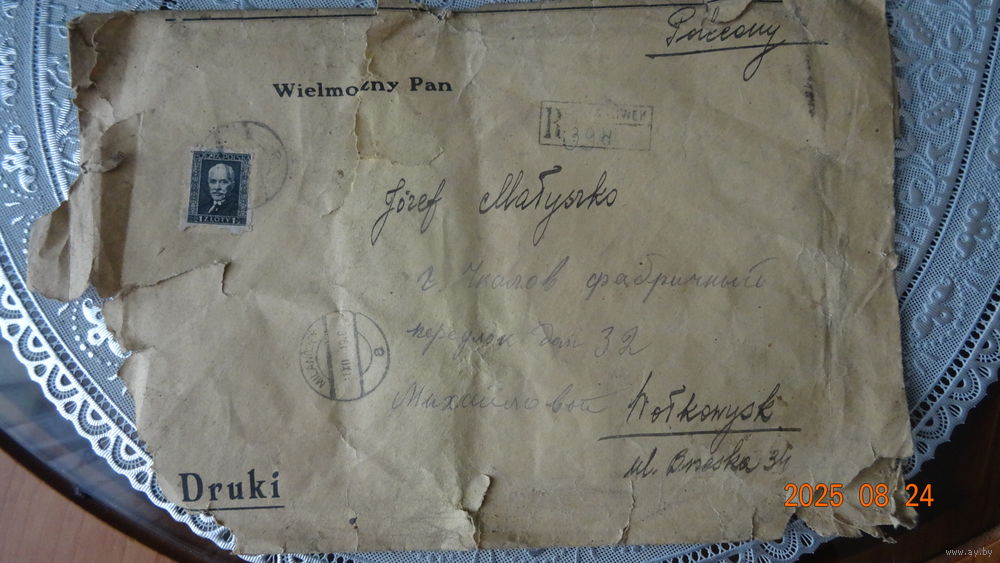 Polecony
Wielmożny Pan
R
398
POCZTA POLSKA
1 ZŁOTY 1
Józef Małyszko
г. Чкалов фабричный
переулок дом 32
Михайловой
Wołkowysk
ul. Brzeska 34
Druki
2025 08 24
www.ay.by